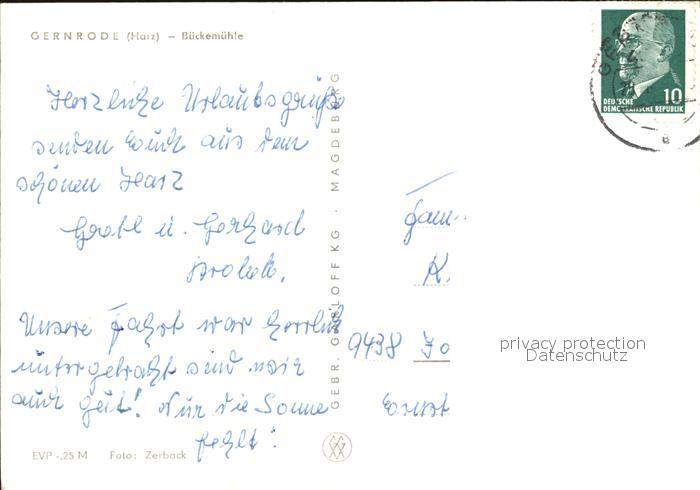 GERNRODE (Harz) – Bückemühle
Herzliche Urlaubsgrüße
senden Euch aus dem
schönen Harz
u. Gerhard
Unsere Fahrt war herrlich
untergebracht sind wir
auch gut! Nur die Sonne
fehlt!
EVP -,25 M Foto: Zerback
GEBR. GARLOFF KG · MAGDEBURG
10
DEUTSCHE
DEMOKRATISCHE REPUBLIK
Fam.
K.
9438 Jo
Ernst
privacy protection
Datenschutz